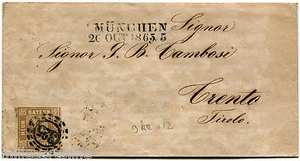 MÜNCHEN
20 OCT 1863. 5
Signor
Signor G. B. Tambosi
Trento
Tirolo.
BAYERN
9 kr